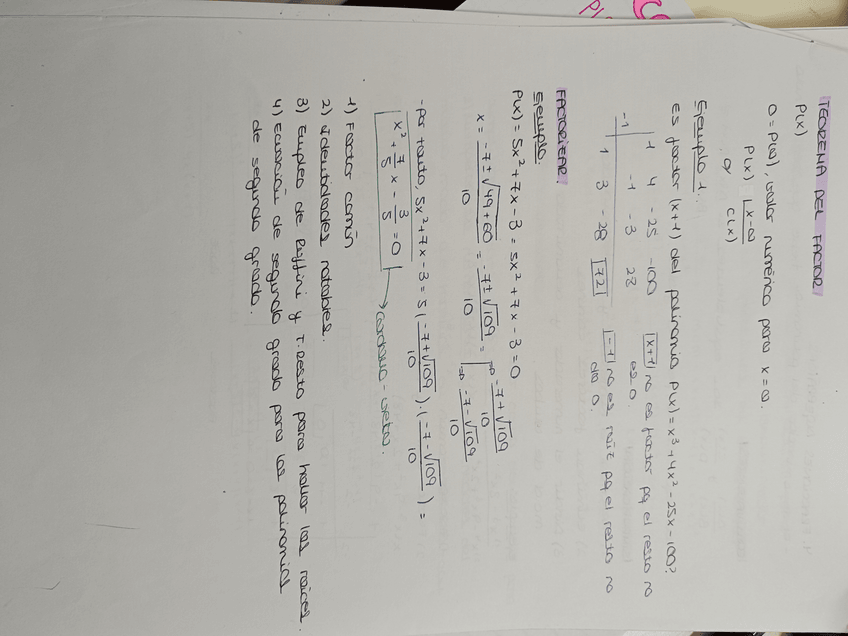 TEOREMA DEL FACTOR
P(x)
0 = P(a), valor numérico para x = a.
P(x) | x-a
0/ C(x)
Ejemplo 1:
Es factor (x+1) del polinomio P(x) = x³ + 4x² - 25x - 100?
1 4 -25 -100
-1 -1 -3 28
1 3 -28 |72|
|x+1| no es factor pq el resto no
es 0.
|-1| no es raíz pq el resto no
da 0.
FACTORIZAR
Ejemplo.
P(x) = 5x² + 7x - 3 = 5x² + 7x - 3 = 0
x = -7 ± √49+60 / 10 = -7 ± √109 / 10 = -7 + √109 / 10
-7 - √109 / 10
-por tanto, 5x² + 7x - 3 = 5 ( -7 + √109 / 10 ) · ( -7 - √109 / 10 ) =
x² + 7/5 x - 3/5 = 0 → cardano - vieta.
1) Factor común
2) Identidades notables.
3) Empleo de Ruffini y T. Resto para hallar las raíces.
4) Ecuación de segundo grado para los polinomios
de segundo grado.